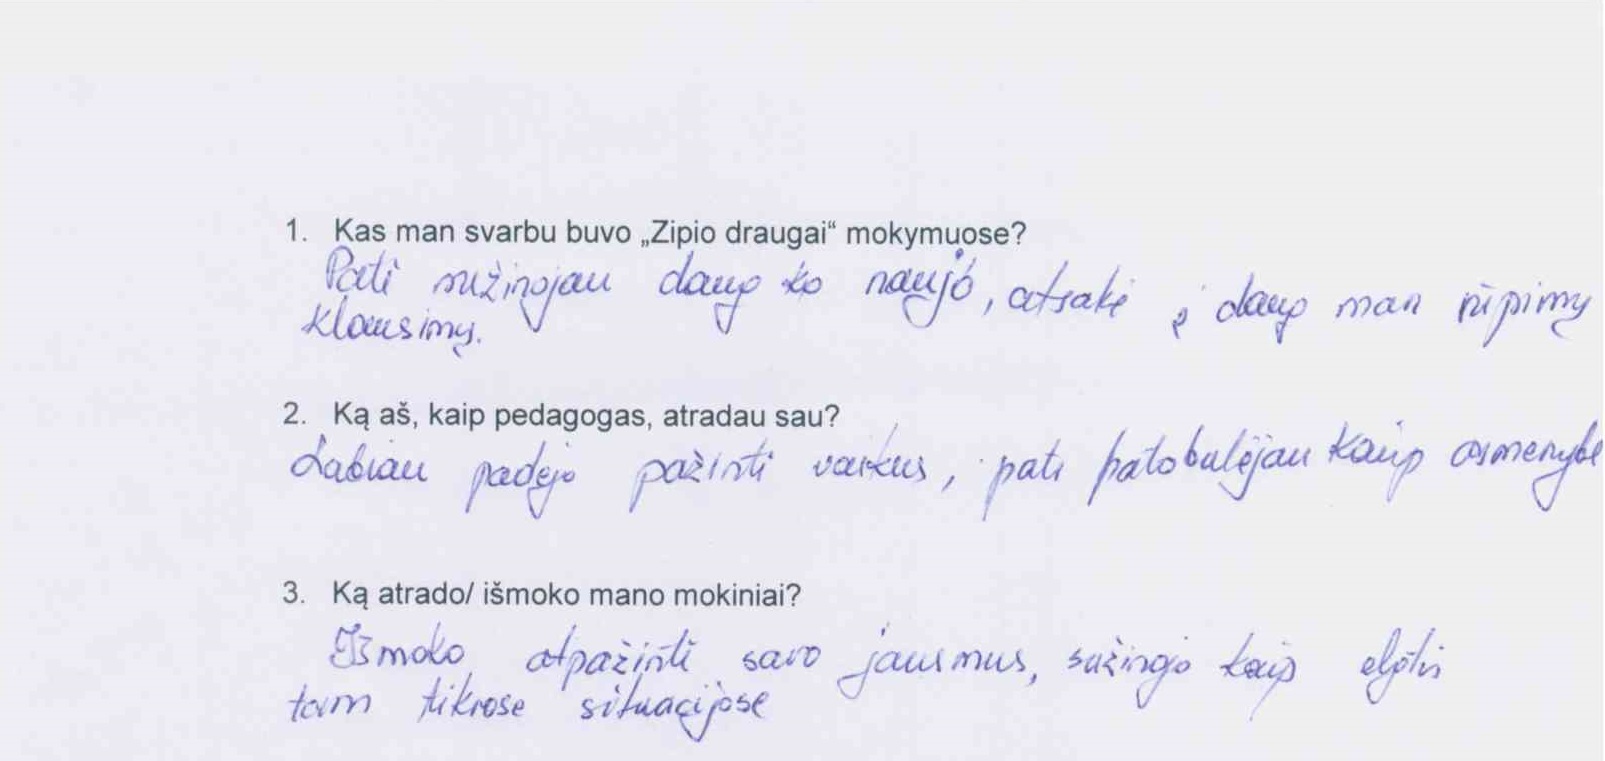 1. Kas man svarbu buvo „Zipio draugai“ mokymuose?
Pati sužinojau daug ko naujo, atsakė į daug man rūpimų
klausimų.
2. Ką aš, kaip pedagogas, atradau sau?
Labiau padėjo pažinti vaikus, pati patobulėjau kaip asmenybė
3. Ką atrado/ išmoko mano mokiniai?
Išmoko atpažinti savo jausmus, sužinojo kaip elgtis
tam tikrose situacijose